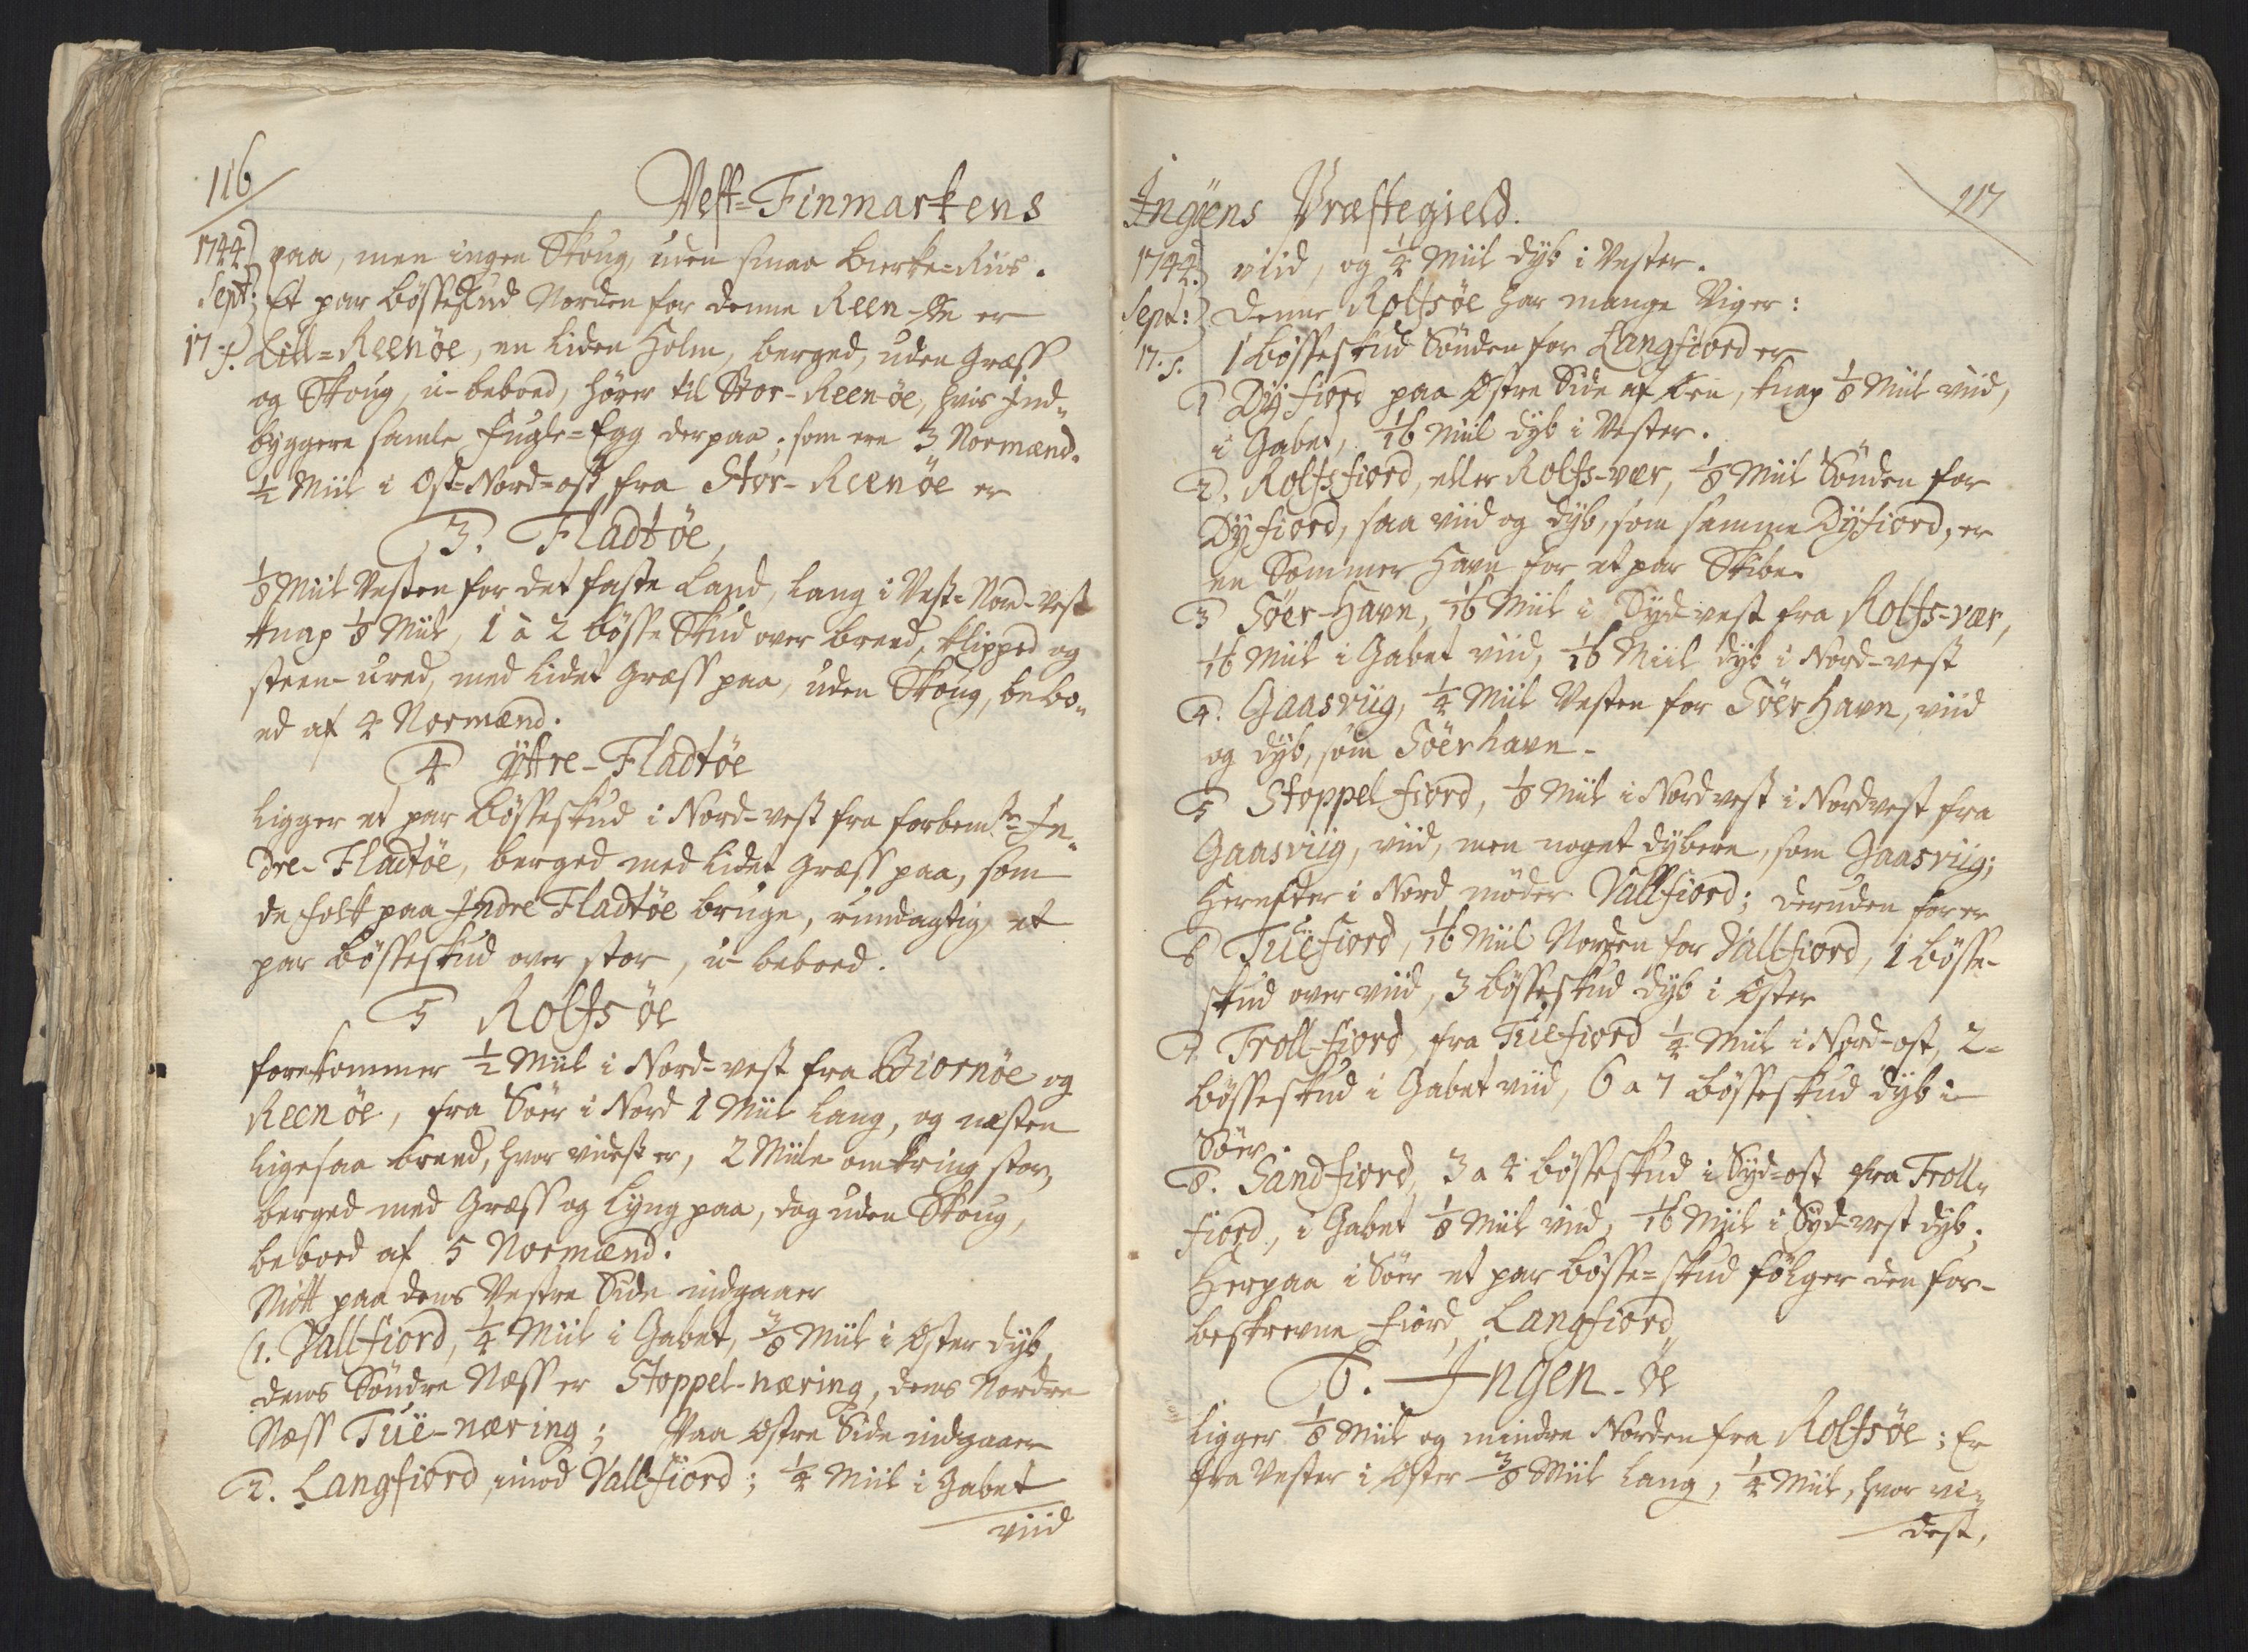 116
Vest-Finmarkens
1744 paa, men ingen Skoug, uden smaa Bierke-Riis.
Sept: Et par bøsseskud Norden for denne Reen-Øe er
17.s. Lill-Reenöe, en liden Holm, berged, uden Græss
og Skoug, u-beboed, hører til Stor-Reen-öe, hvis Ind-
byggere samle Fugle-Egg derpaa; som ere 3 Normænd.
½ Miil i Ost-Nord-ost fra Stor-Reenöe er
3. Fladtöe,
⅛ Miil Vesten for det faste Land, lang i Vest-Nord-Vest
knap ⅛ Miil, 1 à 2 bösse Skud over breed, klipped og
steen-ured, med lidet Græss paa, uden Skoug, bebo-
ed af 4 Normænd.
4 Yttre-Fladtöe
ligger et par bösseskud i Nord-vest fra forbemte In-
dre-Fladtöe, berged med lidet Græss paa, som
de folk paa Indre Fladtöe bruge, rundagtig et
par bösseskud over stor, u-beboed.
5 Rolfsöe
forekommer ½ Miil i Nord-vest fra Biornöe og
Reenöe, fra Söer i Nord 1 Miil lang, og næsten
ligesaa breed, hvor videst er, 2 Miile omkring stor,
berged med Græss og Lyng paa, dog uden Skoug,
beboed af 5 Normænd.
Mitt paa dens Vestre Side indgaaer
1. Vallfiord, ¼ Miil i Gabet, ⅜ Miil i Oster dyb,
dens Söndre Næss er Stoppel-næring, dens Nordre
Næss Tüe-næring; Paa Ostre Side indgaaer
2. Langfiord, imod Vallfiord; ¼ Miil i Gabet
viid
Ingöens Præstegield.
117
1744. viid, og ¼ Miil dyb i Vester.
Sept: Denne Rolfsöe har mange Viger:
17.s. 1 bösseskud Sönden for Langfiord er
1 Dyfiord paa Ostre Side af Øen, knap ⅛ Miil viid,
i Gabet, 1/16 Miil dyb i Vester.
2. Rolfsfiord, eller Rolfs-vær, ⅛ Miil Sönden for
Dyfiord, saa viid og dyb, som samme Dyfiord, er
en Sommer Havn for et par Skibe.
3 Söer-Havn, 1/16 Miil i Sydvest fra Rolfs-vær,
1/16 Miil i Gabet viid, 1/16 Miil dyb i Nord-vest
4. Gaasviig, ¼ Miil Vesten for Söerhavn, viid
og dyb, som Söerhavn-
5 Stoppelfiord, ⅛ Miil i Nordvest i Nordvest fra
Gaasviig, viid, men noget dybere, som Gaasviig;
Herefter i Nord möder Vallfiord; deruden for er
6 Tüefiord, 1/16 Miil Norden for Vallfiord, 1 bösse-
skud over viid, 3 bösseskud dyb i Oster
7. Troll-fiord, fra Tüefiord ¼ Miil i Nord-ost, 2-
bösseskud i Gabet viid, 6 a 7 bösseskud dyb i
Söer.
8. Sandfiord, 3 a 4 bösseskud i Syd-ost fra Troll-
fiord, i Gabet ⅛ Miil viid, 1/16 Miil i Sydvest dyb.
Herpaa i Söer et par bösse-skud fölger den for-
beskrevne Fiord, Langfiord
6. Ingen-öe
ligger ⅛ Miil og mindre Norden fra Rolfsöe; Er
fra Vester i Oster ⅜ Miil lang, ¼ Miil, hvor vi-
dest,